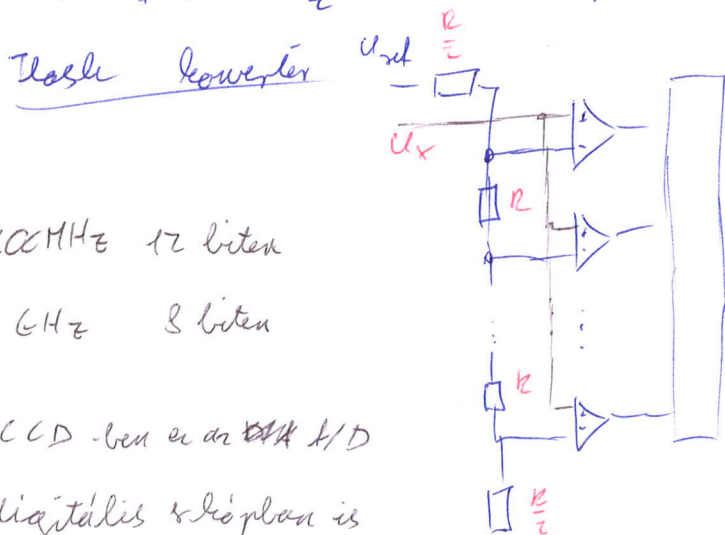 Flash konverter
U_ref
R/2
U_x
R
100MHz 12 biten
GHz 8 biten
R
CCD-ben ez az A/D
digitális szkópban is
R/2